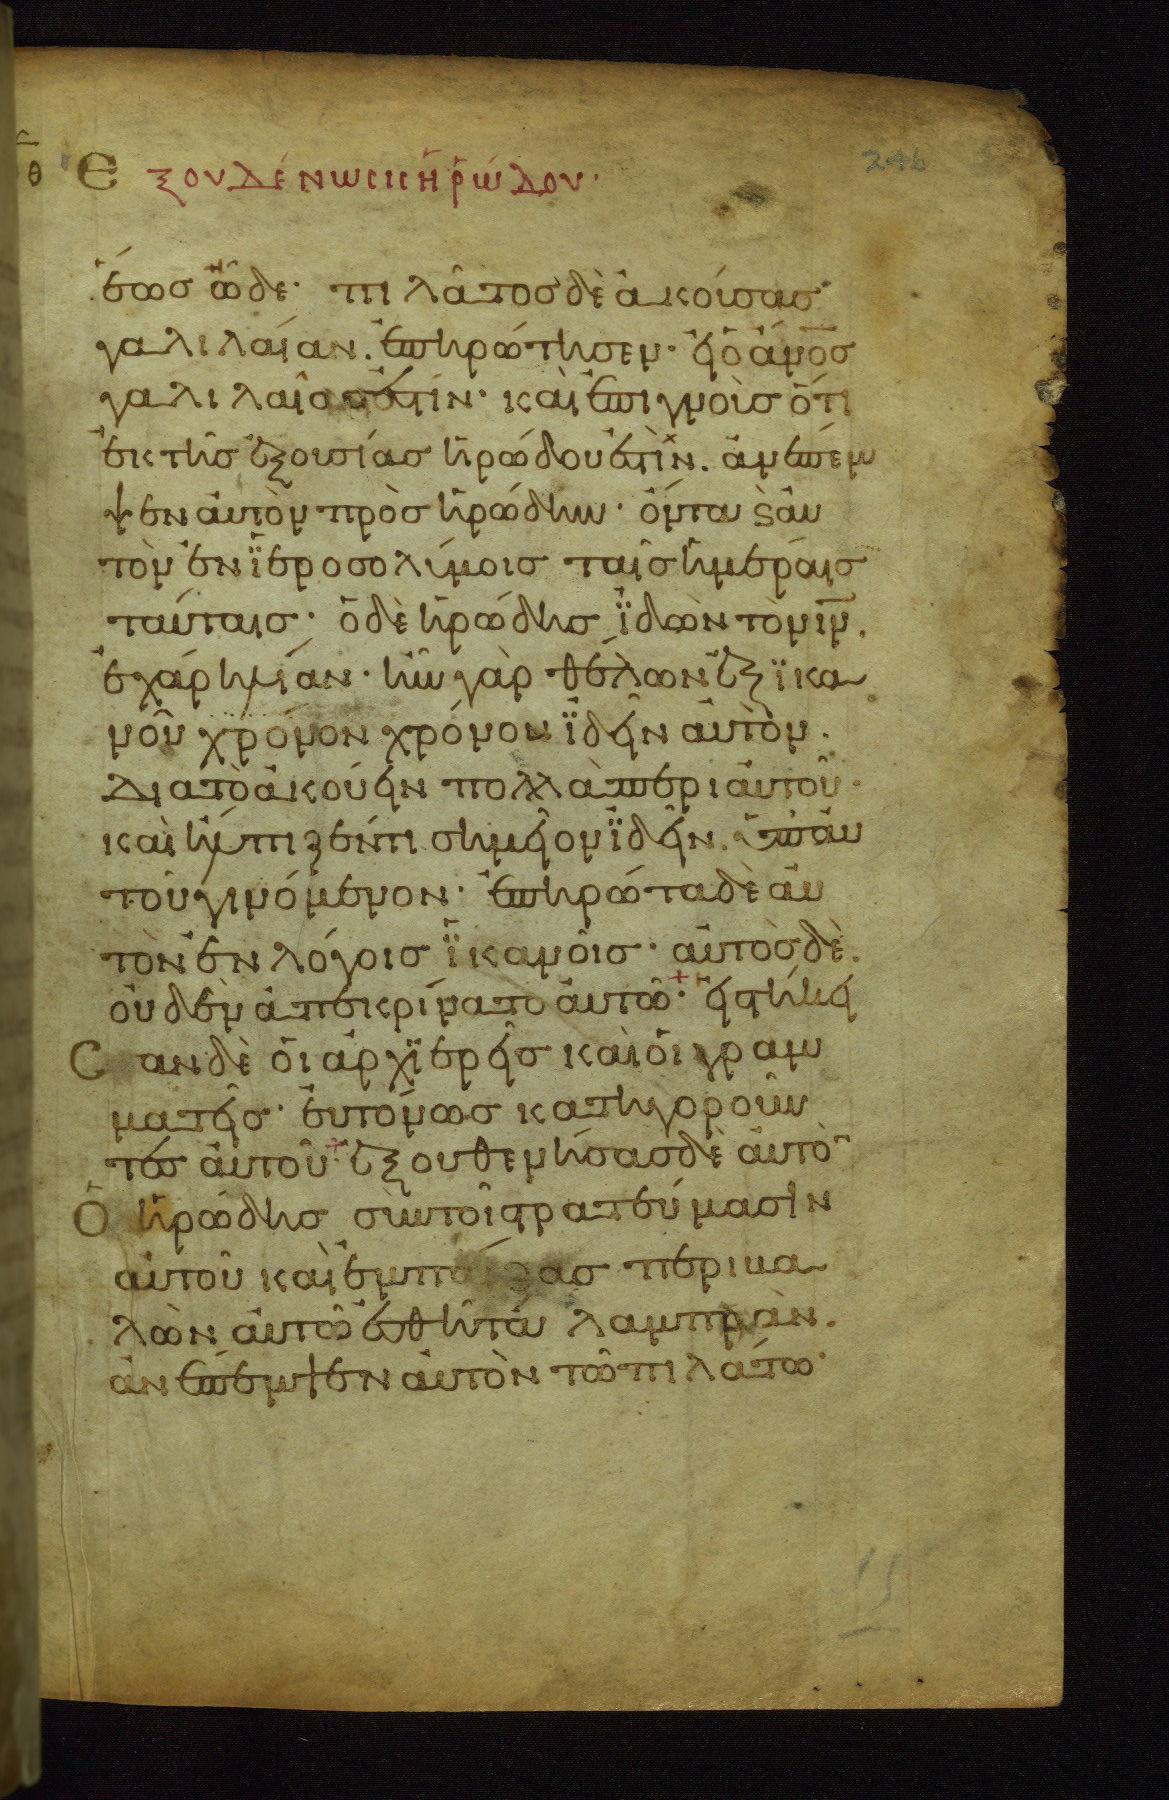 θ Εξουδένωσις ἡρώδου·
246
ἕως ὧδε· πιλάτος δὲ ἀκούσας
γαλιλαίαν. ἐπηρώτησεν· εἰ ὁ ἄνος
γαλιλαῖος ἐστίν· καὶ ἐπιγνοὺς ὅτι
ἐκ τῆς ἐξουσίας ἡρώδου ἐστὶν. ἀνέπεμ
ψεν αὐτὸν πρὸς ἡρώδην· ὄντα ϗ αὐ
τὸν ἐν ϊεροσολύμοις ταῖς ἡμέραις
ταύταις· ὁ δὲ ἡρώδης ϊδὼν τὸν ιν.
ἐχάρη λίαν· ἦν γὰρ θέλων ἐξ ϊκα
νοῦ χρόνον χρόνου ϊδεῖν αὐτὸν.
Διατὸ ἀκούειν πολλὰ περι αὐτοῦ·
καὶ ἤλπιζέν τι σημεῖον ϊδεῖν. ὑπ αὐ
τοῦ γινόμενον· ἐπηρώτα δὲ αὐ
τὸν ἐν λόγοις ϊκανοῖς· αὐτὸς δὲ.
οὐδὲν ἀπεκρίνατο αὐτῶ· εἱστήκει
Cανδὲ οἱ ἀρχϊερεῖς καὶ οἱ γραμ
ματεῖς· εὐτόνως κατηγοροῦν
τες αὐτοῦ· ἐξουθενήσας δὲ αὐτὸ
Ὁ ἡρώδης σὺν τοῖς στρατεύμασιν
αὐτοῦ καὶ ἐμπαίξας περιβα
λὼν αὐτῶ ἐσθῆτα λαμπρὰν.
ἀνέπεμψεν αὐτὸν τῶ πιλάτω·